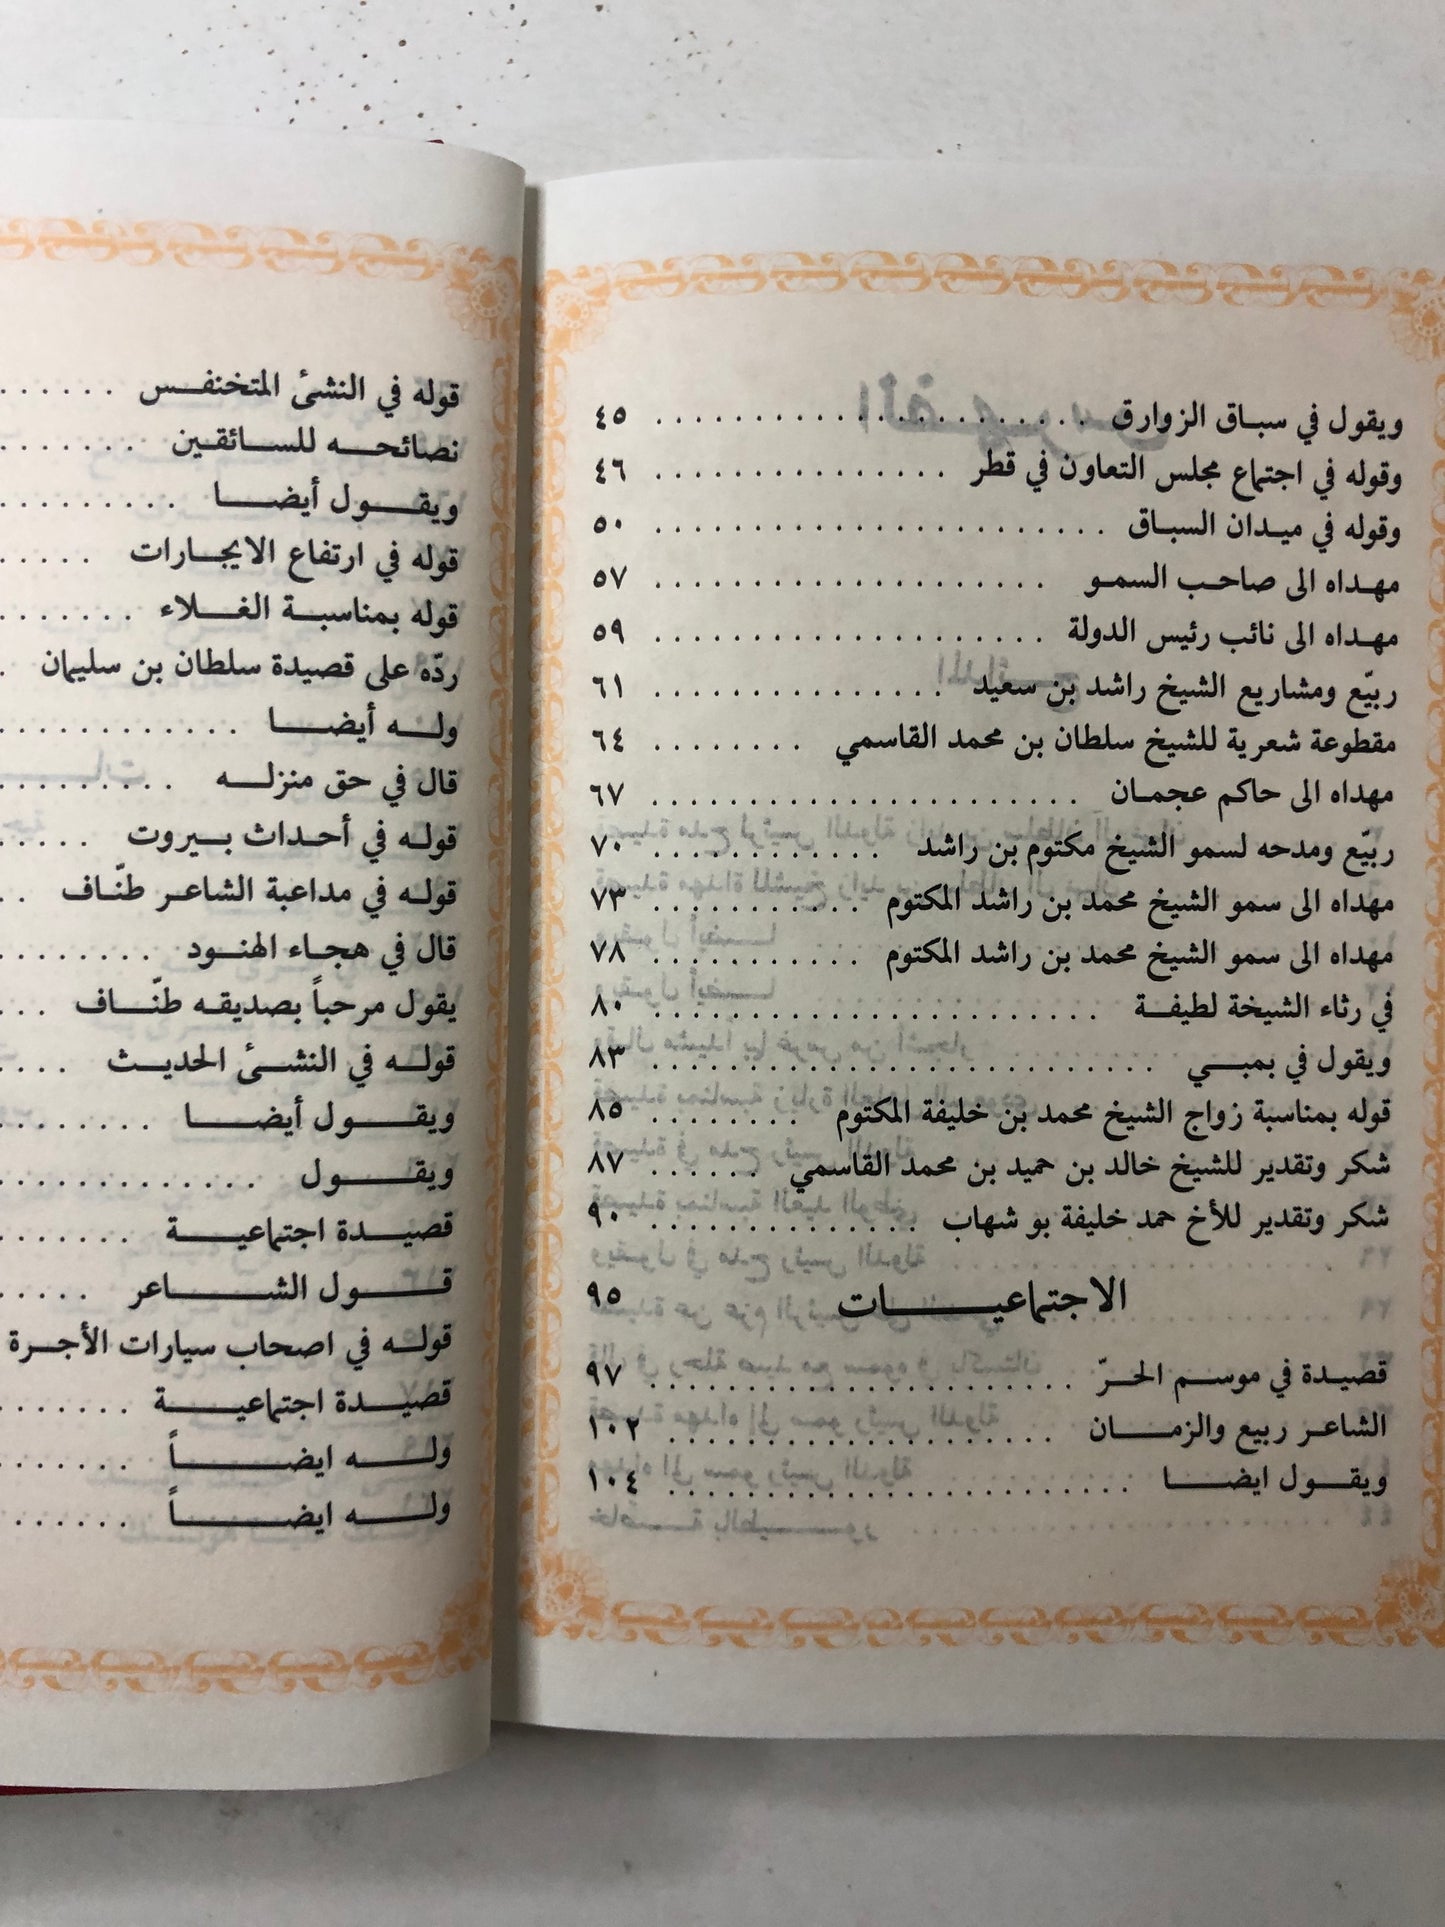 ويقول في سباق الزوارق . . . . . . . . . . . . . . . . . . . . . ٤٥
وقوله في اجتماع مجلس التعاون في قطر . . . . . . . . . . . . . . . ٤٦
وقوله في ميدان السباق . . . . . . . . . . . . . . . . . . . . . . ٥٠
مهداه الى صاحب السمو . . . . . . . . . . . . . . . . . . . . ٥٧
مهداه الى نائب رئيس الدولة . . . . . . . . . . . . . . . . . . . . ٥٩
ربيّع ومشاريع الشيخ راشد بن سعيد . . . . . . . . . . . . . . . ٦١
مقطوعة شعرية للشيخ سلطان بن محمد القاسمي . . . . . . . . ٦٤
مهداه الى حاكم عجمان . . . . . . . . . . . . . . . . . . . . . ٦٧
ربيّع ومدحه لسمو الشيخ مكتوم بن راشد . . . . . . . . . . . . ٧٠
مهداه الى سمو الشيخ محمد بن راشد المكتوم . . . . . . . . . . . ٧٣
مهداه الى سمو الشيخ محمد بن راشد المكتوم . . . . . . . . . . . ٧٨
في رثاء الشيخة لطيفة . . . . . . . . . . . . . . . . . . . . . . ٨٠
ويقول في بمبي . . . . . . . . . . . . . . . . . . . . . . . . . ٨٣
قوله بمناسبة زواج الشيخ محمد بن خليفة المكتوم . . . . . . . . ٨٥
شكر وتقدير للشيخ خالد بن حميد بن محمد القاسمي . . . . . . ٨٧
شكر وتقدير للأخ حمد خليفة بو شهاب . . . . . . . . . . . . . ٩٠
الاجتماعيات ٩٥
قصيدة في موسم الحرّ . . . . . . . . . . . . . . . . . . . . . ٩٧
الشاعر ربيع والزمان . . . . . . . . . . . . . . . . . . . ١٠٢
ويقول ايضا . . . . . . . . . . . . . . . . . . . . . . . ١٠٤
قوله في النشئ المتخنفس . . . . . .
نصائحه للسائقين . . . . . . .
ويقول أيضا . . . . . . . . .
قوله في ارتفاع الايجارات . . . . .
قوله بمناسبة الغلاء . . . . . . .
ردّه على قصيدة سلطان بن سليمان .
وله أيضا . . . . . . . . . . . .
قال في حق منزله . . . . . . . . .
قوله في أحداث بيروت . . . . . .
قوله في مداعبة الشاعر طنّاف . .
قال في هجاء الهنود . . . . . . . .
يقول مرحباً بصديقه طنّاف . . .
قوله في النشئ الحديث . . . .
ويقول أيضا . . . . . . . .
ويقول . . . . . . . . . . . . .
قصيدة اجتماعية . . . . . . .
قول الشاعر . . . . .
قوله في اصحاب سيارات الأجرة
قصيدة اجتماعية . . . . . . .
وله ايضاً . . . . . . .
وله ايضاً . . . . . .